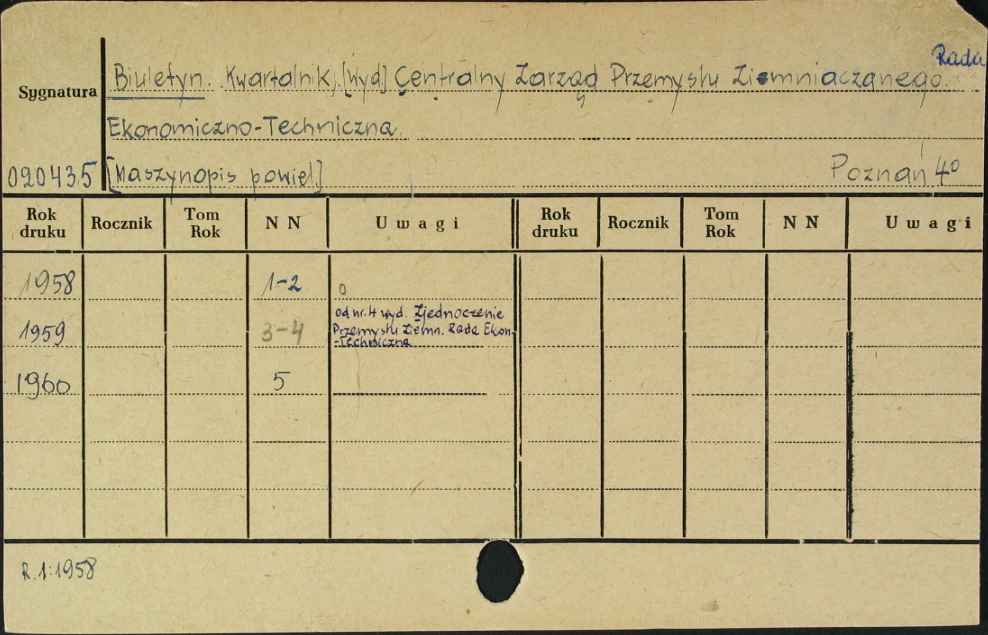 Rada
Sygnatura Biuletyn. Kwartalnik, [Wyd] Centralny Zarząd Przemysłu Ziemniaczanego.
Ekonomiczno-Techniczna
020435 [Maszynopis powiel] Poznań 4°
Rok druku Rocznik Tom Rok N N Uwagi Rok druku Rocznik Tom Rok N N Uwagi
1958 1-2 0
od nr. 4 wyd. Zjednoczenie
1959 3-4 Przemysłu Ziemn. Rada Ekon.
-Techniczna
1960 5
R. 1:1958